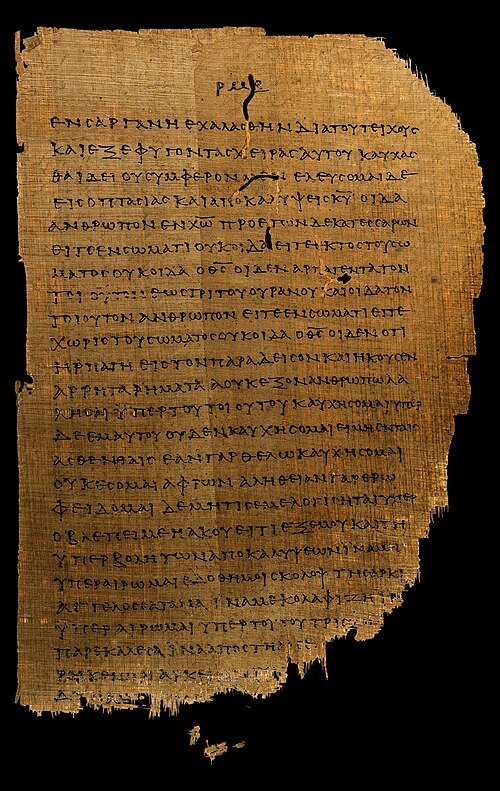 ΕΝϹΑΡΓΑΝΗΕΧΑΛΑϹΘΗΝΔΙΑΤΟΥΤΕΙΧΟΥϹ
ΚΑΙΕΞΕΦΥΓΟΝΤΑϹΧΕΙΡΑϹΑΥΤΟΥ ΚΑΥΧΑϹ
ΘΑΙΔΕΙ ΟΥϹΥΜΦΕΡΟΝΜΕΝ ΕΛΕΥϹΟΜΑΙΔΕ
ΕΙϹΟΠΤΑϹΙΑϹ ΚΑΙΑΠΟΚΑΛΥΨΕΙϹΚ̅Υ̅ ΟΙΔΑ
ΑΝΘΡΩΠΟΝΕΝΧ̅Ω̅ ΠΡΟΕΤΩΝΔΕΚΑΤΕϹϹΑΡΩΝ
ΕΙΤΕΕΝϹΩΜΑΤΙΟΥΚΟΙΔΑΕΙΤΕΕΚΤΟϹΤΟΥϹΩ
ΜΑΤΟϹΟΥΚΟΙΔΑ ΟΘ̅Ϲ̅ΟΙΔΕΝ ΑΡΠΑΓΕΝΤΑΤΟΝ
ΤΟΙΟΥΤΟΝΕΩϹΤΡΙΤΟΥΟΥΡΑΝΟΥ ΚΑΙΟΙΔΑΤΟΝ
ΤΟΙΟΥΤΟΝΑΝΘΡΩΠΟΝ ΕΙΤΕΕΝϹΩΜΑΤΙΕΙΤΕ
ΧΩΡΙϹΤΟΥϹΩΜΑΤΟϹΟΥΚΟΙΔΑ ΟΘ̅Ϲ̅ΟΙΔΕΝ ΟΤΙ
ΗΡΠΑΓΗ ΕΙϹΤΟΝΠΑΡΑΔΕΙϹΟΝΚΑΙΗΚΟΥϹΕΝ
ΑΡΡΗΤΑΡΗΜΑΤΑ ΑΟΥΚΕΞΟΝΑΝΘΡΩΠΩΛΑ
ΛΗϹΑΙΥΠΕΡΤΟΥΤΟΙΟΥΤΟΥΚΑΥΧΗϹΟΜΑΙΥΠΕΡ
ΔΕΕΜΑΥΤΟΥΟΥΔΕΝΚΑΥΧΗϹΟΜΑΙΕΙΜΗΕΝΤΑΙϹ
ΑϹΘΕΝΕΙΑΙϹ ΕΑΝΓΑΡΘΕΛΩΚΑΥΧΗϹΟΜΑΙ
ΟΥΚΕϹΟΜΑΙΑΦΡΩΝ ΑΛΗΘΕΙΑΝΓΑΡΕΡΩ
ΦΕΙΔΟΜΑΙ ΔΕΜΗΤΙϹΕΜΕΛΟΓΙϹΗΤΑΙΥΠΕΡ
ΟΒΛΕΠΕΙΜΕΗΑΚΟΥΕΙΤΙΕΞΕΜΟΥΚΑΙΤΗ
ΥΠΕΡΒΟΛΗΤΩΝΑΠΟΚΑΛΥΨΕΩΝΙΝΑΜΗ
ΥΠΕΡΑΙΡΩΜΑΙΕΔΟΘΗΜΟΙϹΚΟΛΟΨΤΗϹΑΡΚΙ
ΑΓΓΕΛΟϹϹΑΤΑΝΑ ΙΝΑΜΕΚΟΛΑΦΙΖΗ
ΥΠΕΡΑΙΡΩΜΑΙΥΠΕΡΤΟΥΤΟΥΤΡΙϹ
ΠΑΡΕΚΑΛΕϹΑ ΙΝΑΑΠΟϹΤΗ